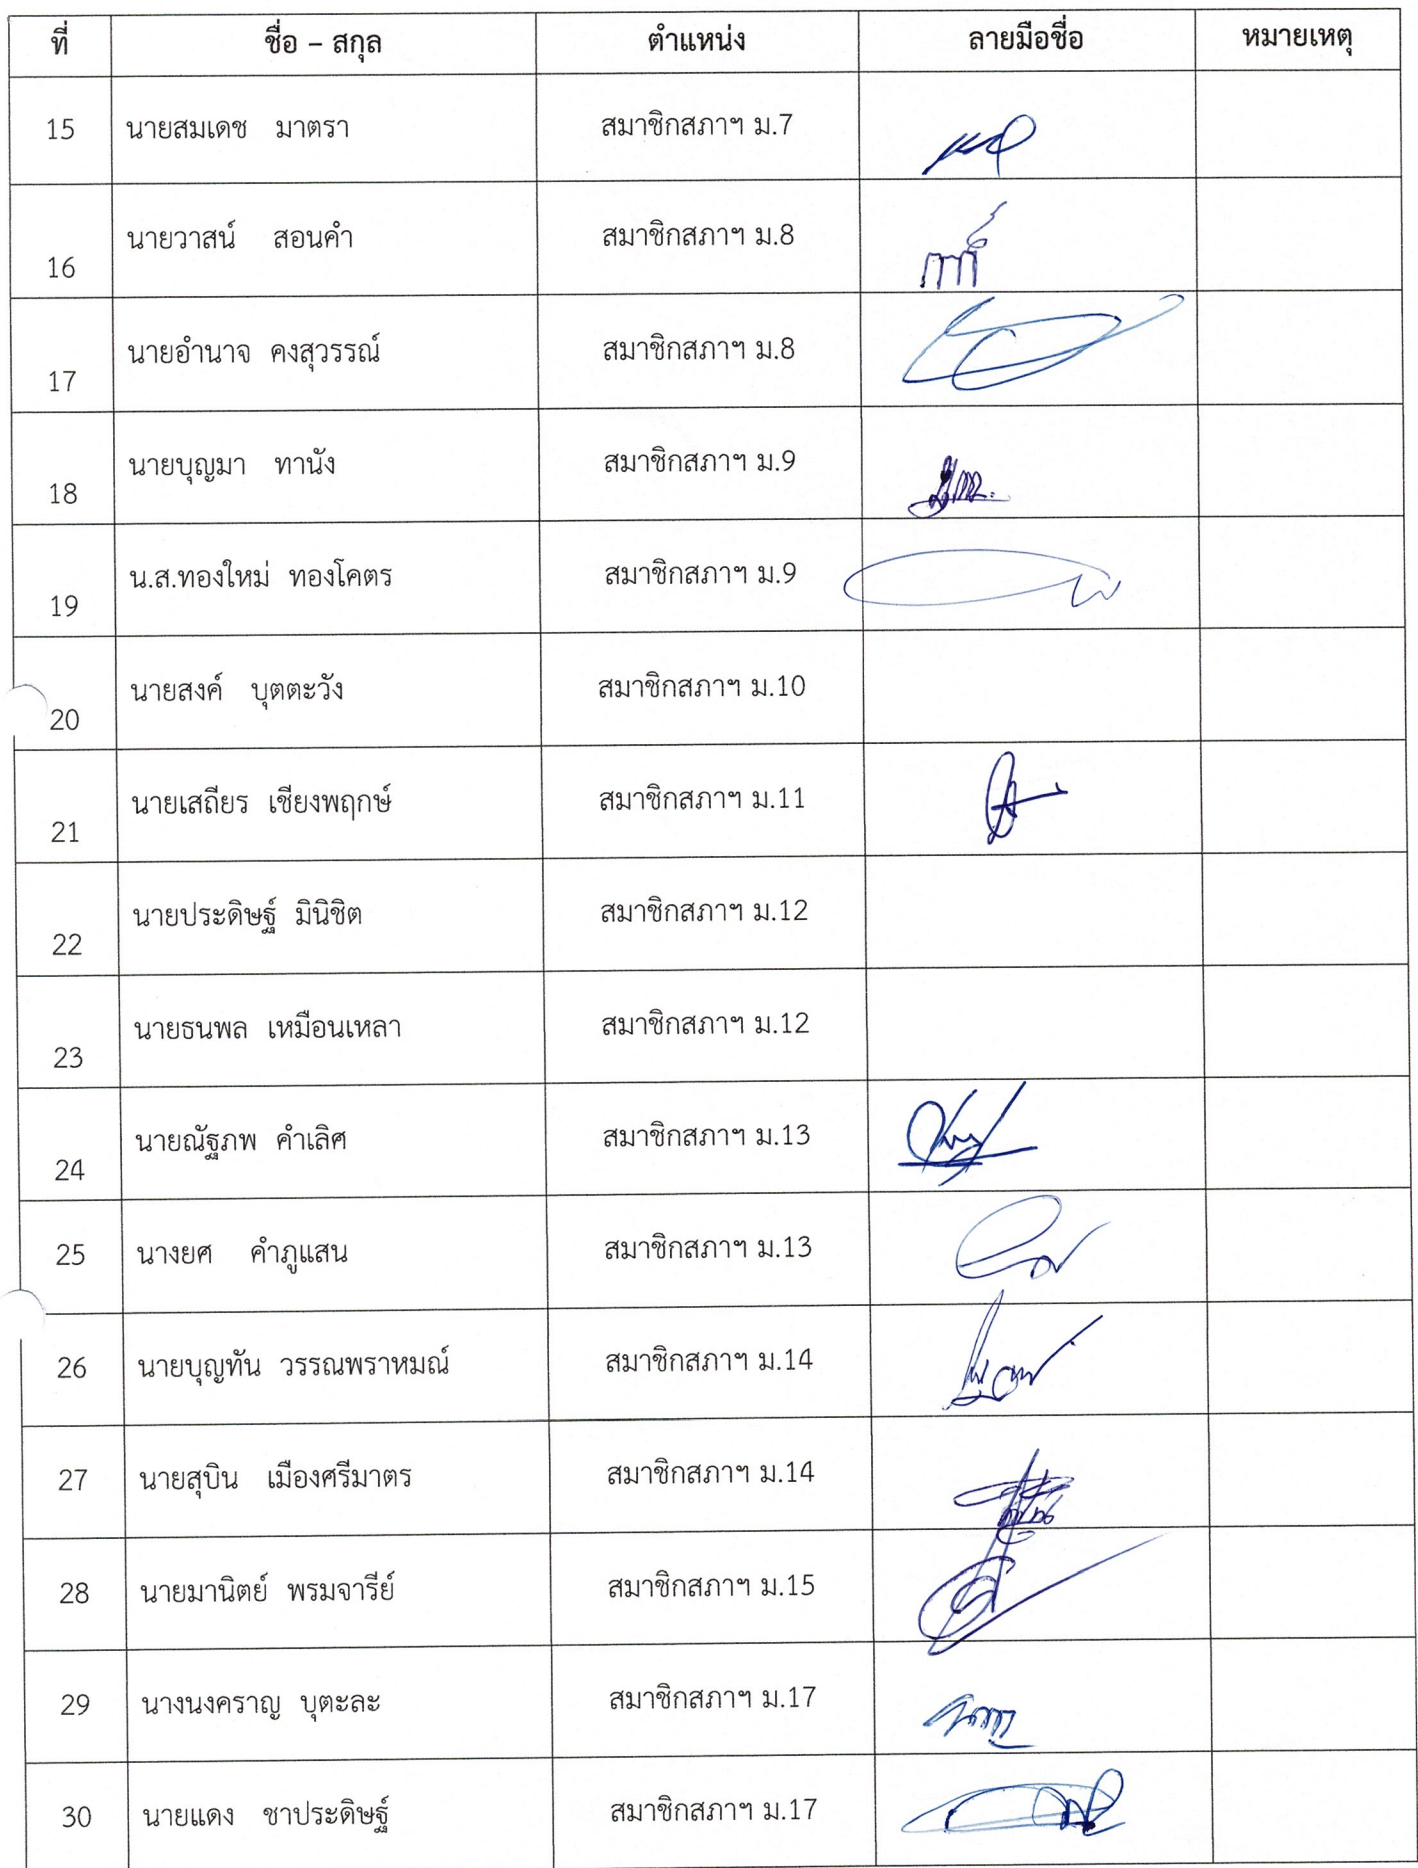 ที่ ชื่อ – สกุล ตำแหน่ง ลายมือชื่อ หมายเหตุ
15 นายสมเดช มาตรา สมาชิกสภาฯ ม.7
16 นายวาสน์ สอนคำ สมาชิกสภาฯ ม.8
17 นายอำนาจ คงสุวรรณ์ สมาชิกสภาฯ ม.8
18 นายบุญมา ทานัง สมาชิกสภาฯ ม.9
19 น.ส.ทองใหม่ ทองโคตร สมาชิกสภาฯ ม.9
20 นายสงค์ บุตตะวัง สมาชิกสภาฯ ม.10
21 นายเสถียร เชียงพฤกษ์ สมาชิกสภาฯ ม.11
22 นายประดิษฐ์ มินิชิต สมาชิกสภาฯ ม.12
23 นายธนพล เหมือนเหลา สมาชิกสภาฯ ม.12
24 นายณัฐภพ คำเลิศ สมาชิกสภาฯ ม.13
25 นางยศ คำภูแสน สมาชิกสภาฯ ม.13
26 นายบุญทัน วรรณพราหมณ์ สมาชิกสภาฯ ม.14
27 นายสุบิน เมืองศรีมาตร สมาชิกสภาฯ ม.14
28 นายมานิตย์ พรมจารีย์ สมาชิกสภาฯ ม.15
29 นางนงคราญ บุตะละ สมาชิกสภาฯ ม.17
30 นายแดง ชาประดิษฐ์ สมาชิกสภาฯ ม.17